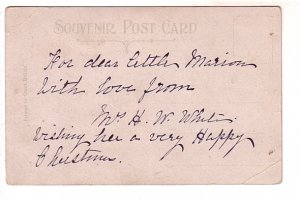 SOUVENIR POST CARD
For dear little Marion
With love from
H. W. White.
wishing her a very Happy
Christmas.